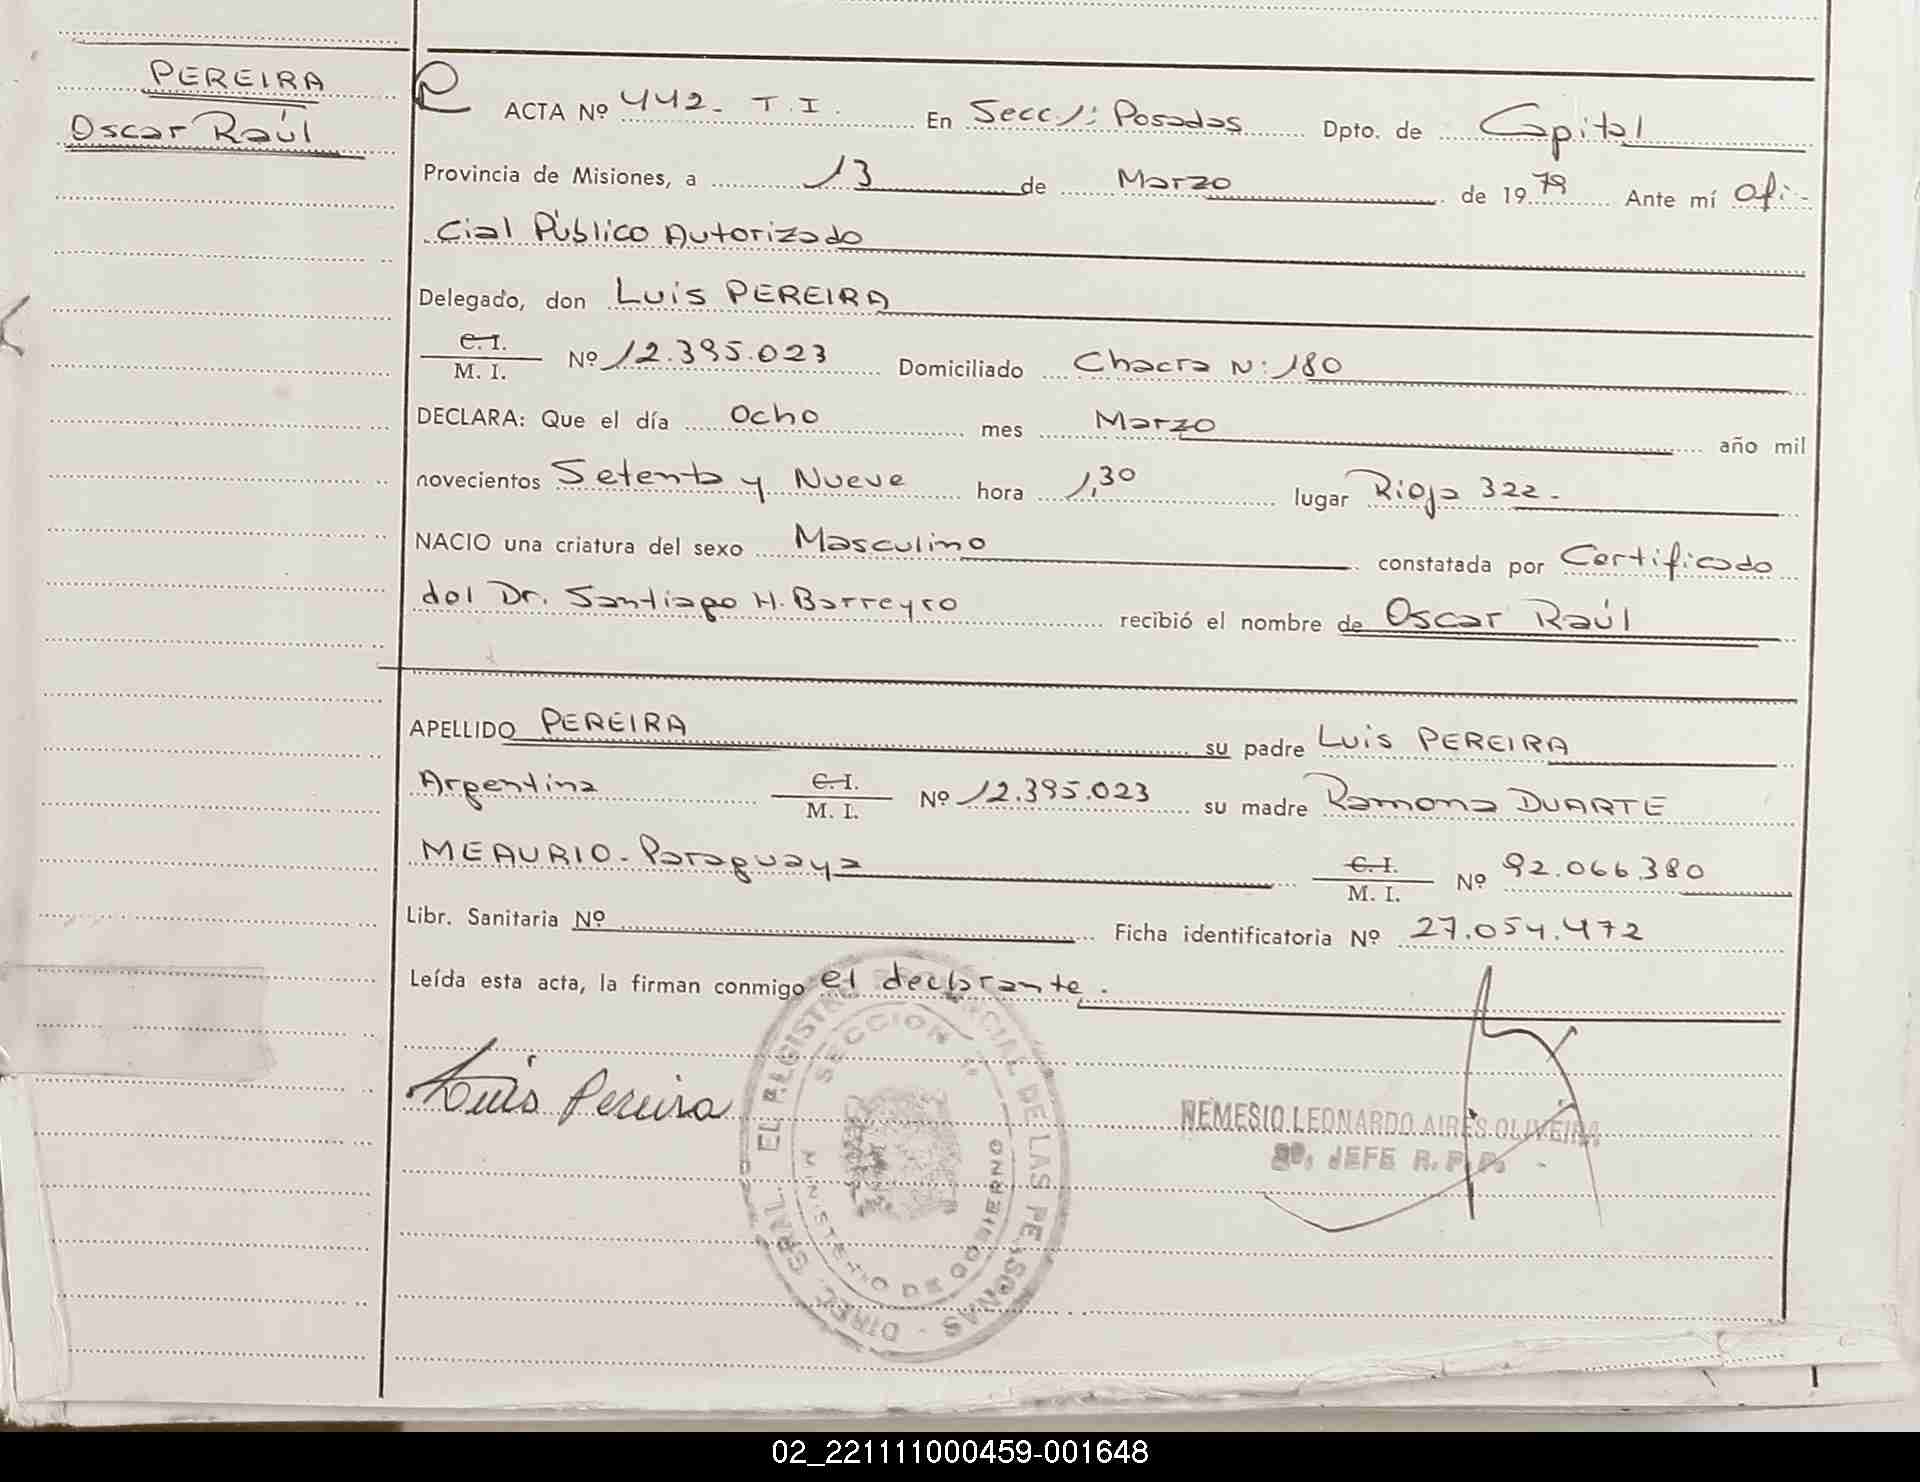 PEREIRA
Oscar Raúl
ACTA Nº 442- T.I. En Secc. 1: Posadas Dpto. de Capital
Provincia de Misiones, a 13 de Marzo de 1979 Ante mí Ofi-
cial Público Autorizado
Delegado, don Luis PEREIRA
C. I.
M. I. Nº 12.395.023 Domiciliado Chacra N: 180
DECLARA: Que el día Ocho mes Marzo año mil
novecientos Setenta y Nueve hora 1,30 lugar Rioja 322.-
NACIO una criatura del sexo Masculino constatada por Certificado
del Dr. Santiago H. Barreyro recibió el nombre de Oscar Raúl
APELLIDO PEREIRA su padre Luis PEREIRA
Argentina C. I.
M. I. Nº 12.395.023 su madre Ramona DUARTE
MEAURIO - Paraguaya C. I.
M. I. Nº 92.066.380
Libr. Sanitaria Nº Ficha identificatoria Nº 27.054.472
Leída esta acta, la firman conmigo el declarante.
Luis Pereira
DIREC. GRAL. DEL REGISTRO PROVINCIAL DE LAS PERSONAS -
SECCION 1ª
MINISTERIO DE GOBIERNO
NEMESIO LEONARDO AIRES OLIVEIRA
2º. JEFE R. P. P.
02_221111000459-001648